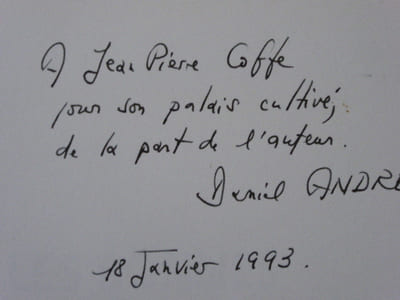 A Jean Pierre Coffe
pour son palais cultivé,
de la part de l'auteur.
Daniel ANDRE
18 Janvier 1993.